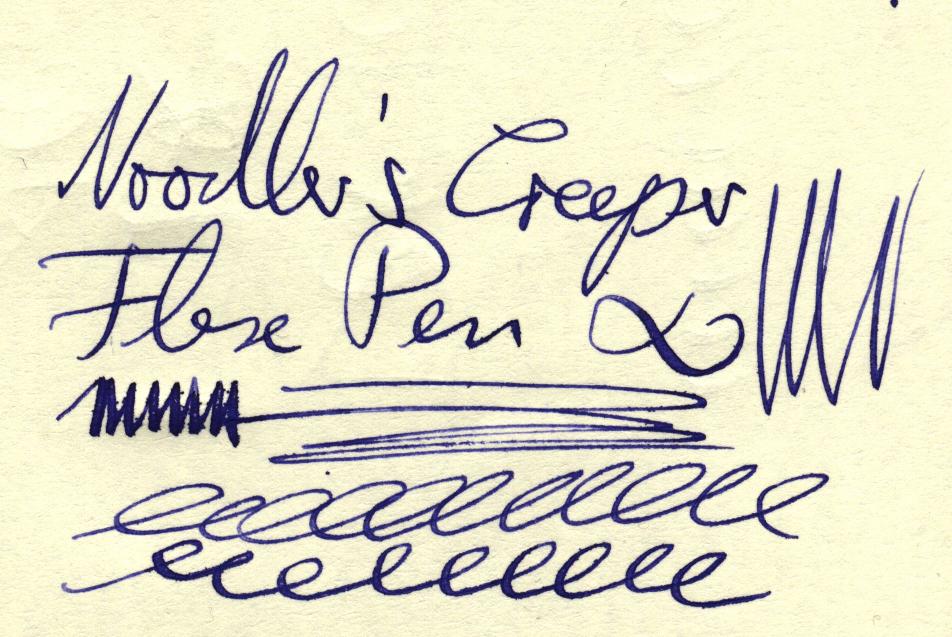 Noodler's Creaper
Flex Pen